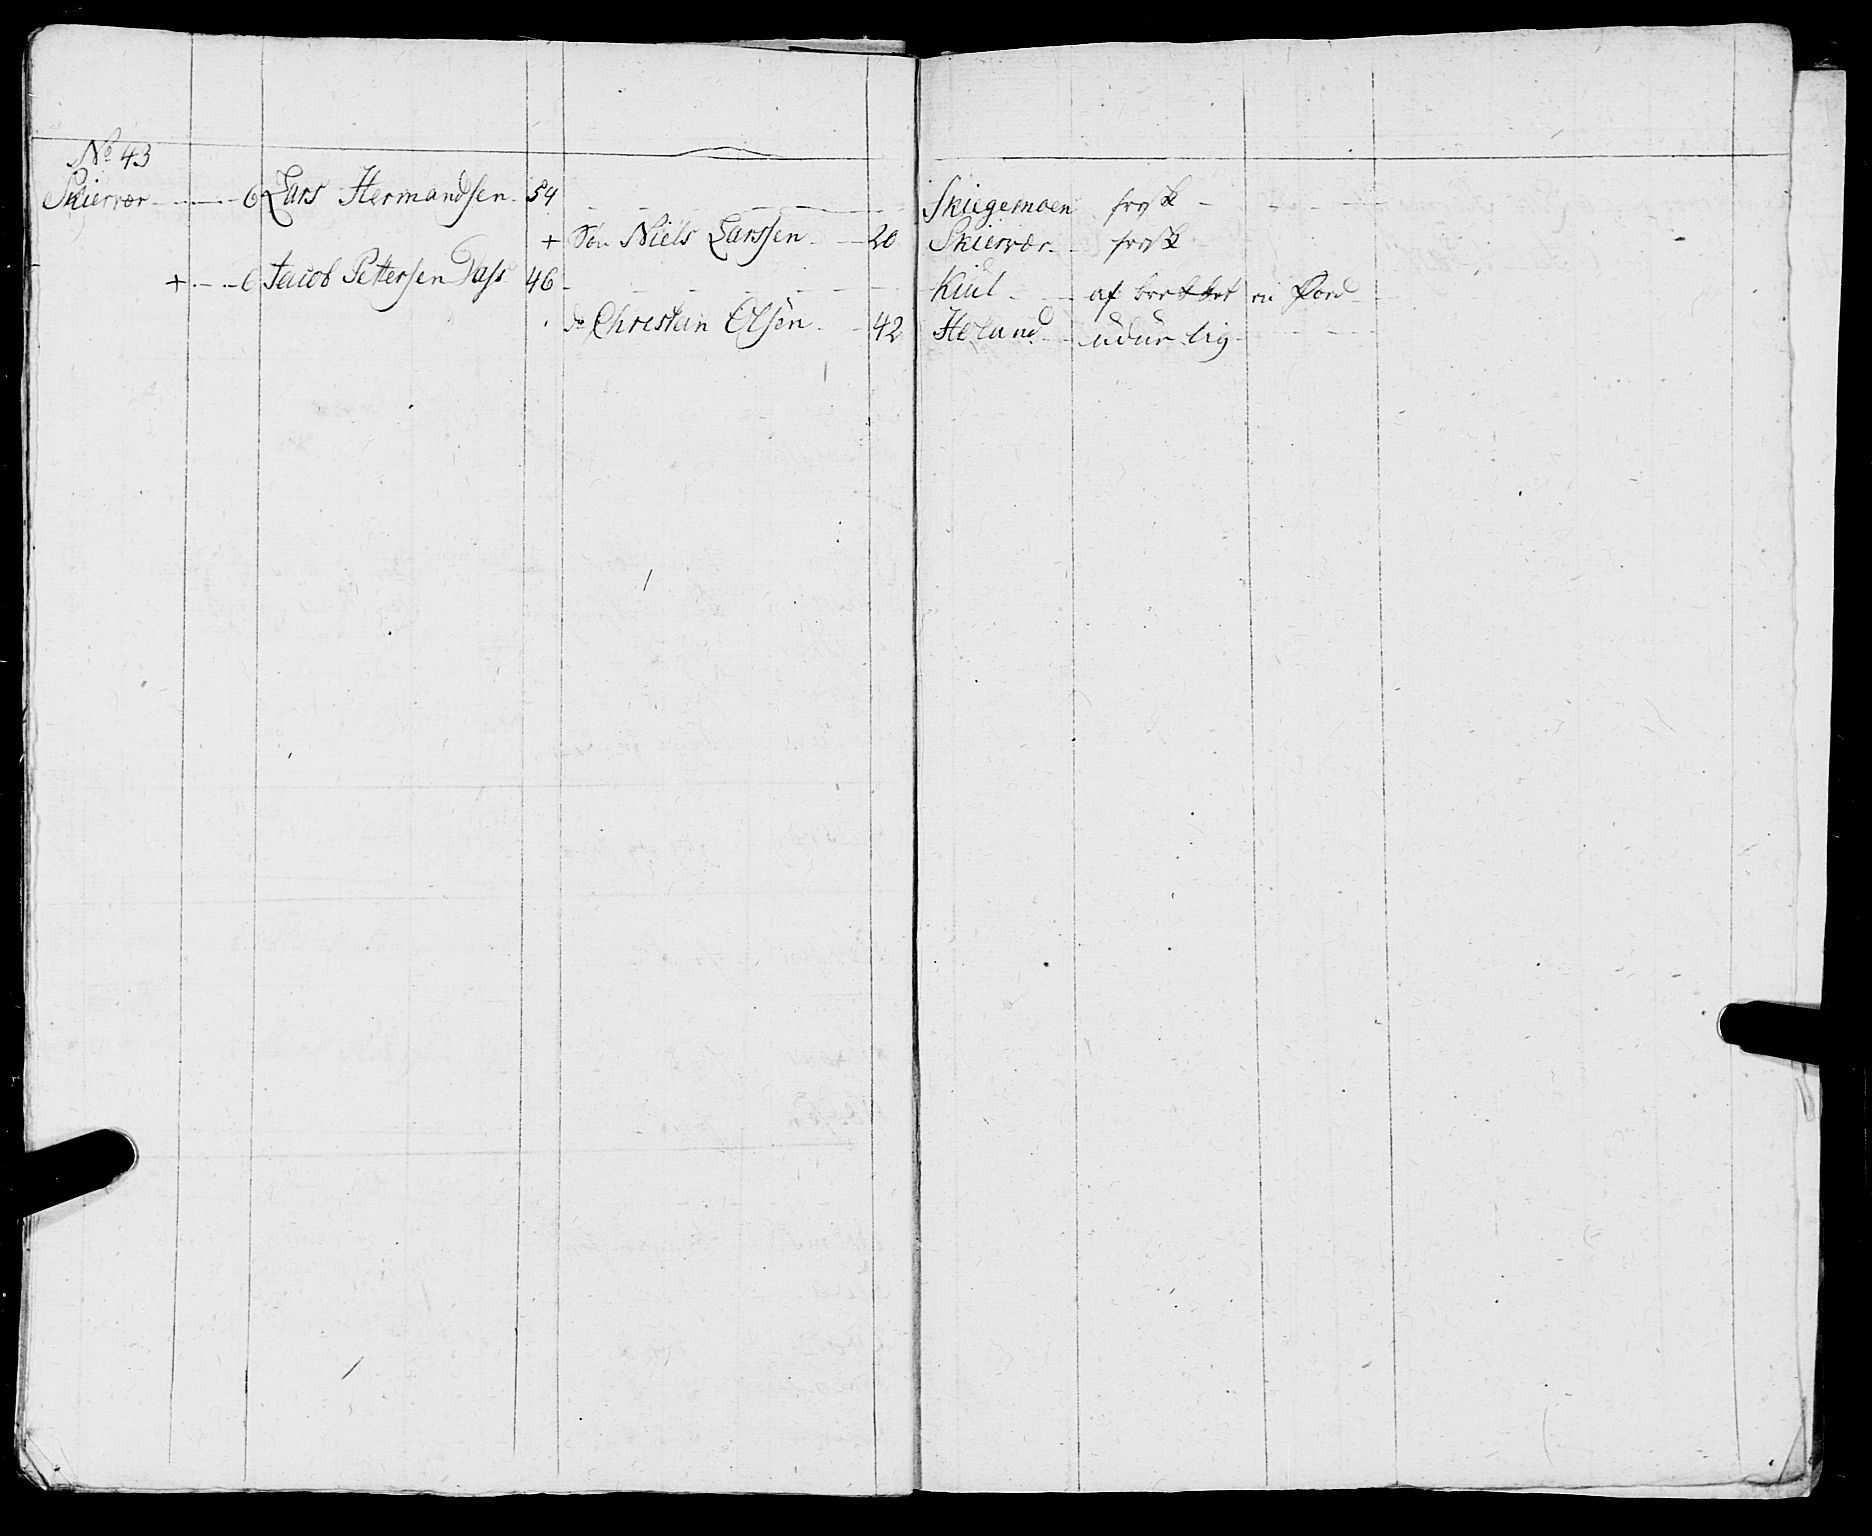 No 43
Skiervær 6 Lars Hermandsen 54 Skiegemoen frisk
+ Søn Niels Larssen 20 Skiervær frisk
+ 6 Jacob Pettersen Dass 46 Kiül af
do Christen Olsen 42 Heland udürlig